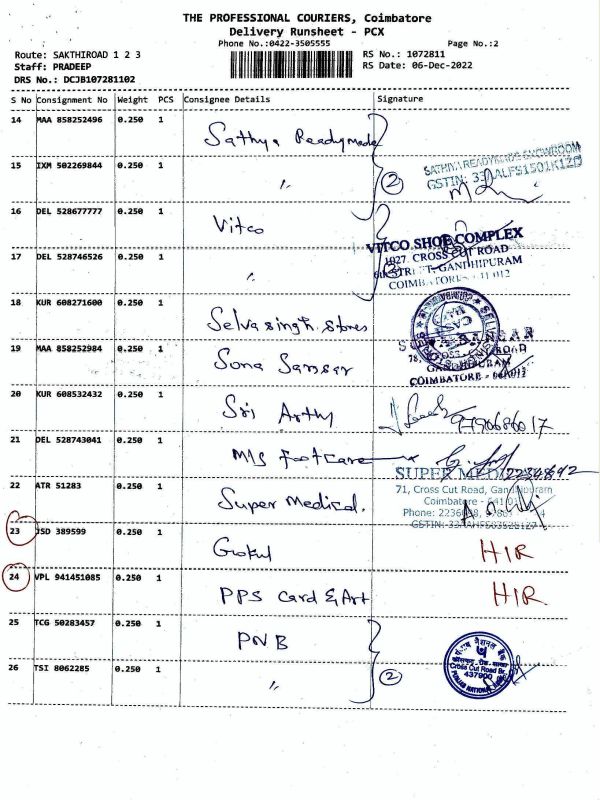 THE PROFESSIONAL COURIERS, Coimbatore
Delivery Runsheet - PCX
Phone No.:0422-3505555 Page No.:2
Route: SAKTHIROAD 1 2 3 RS No.: 1072811
Staff: PRADEEP RS Date: 06-Dec-2022
DRS No.: DCJB107281102
S No Consignment No Weight PCS Consignee Details Signature
14 MAA 858252496 0.250 1 Sathya Readymade
15 IXM 502269844 0.250 1 〃 2
SATHYA READYMADE SHOWROOM
GSTIN:
16 DEL 528677777 0.250 1 Vitco
VITCO SHOE COMPLEX
1027, CROSS CUT ROAD
17 DEL 528746526 0.250 1 〃 2
GANDHIPURAM
18 KUR 608271600 0.250 1 Selvasingh Stores
19 MAA 858252984 0.250 1 Sona Sansar
CROSS ROAD
GANDHIPURAM
COIMBATORE
20 KUR 608532432 0.250 1 Sri Arthy
9790686017
21 DEL 528743041 0.250 1 M/S Footcare
22 ATR 51283 0.250 1 Super Medical.
SUPER
71, Cross Cut Road, Gandhipuram
Coimbatore
Phone:
GSTIN:
23 JSD 389599 0.250 1 Gokul HIR
24 VPL 941451085 0.250 1 PPS Card & Art HIR.
25 TCG 50283457 0.250 1 PNB
26 TSI 8062285 0.250 1 〃 2
पंजाब नैशनल बैंक
Cross Cut Road Br.
437900
PUNJAB NATIONAL BANK